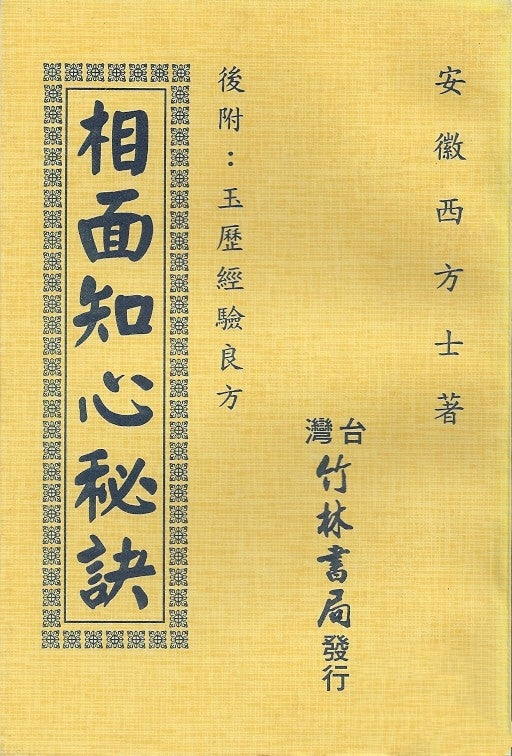 安徽西方士著
台灣
竹林書局發行
後附：玉歷經驗良方
相面知心秘訣